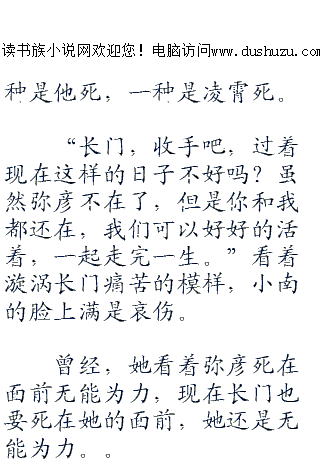 读书族小说网欢迎您！电脑访问www.dushuzu.com
种是他死，一种是凌霄死。
“长门，收手吧，过着
现在这样的日子不好吗？虽
然弥彦不在了，但是你和我
都还在，我们可以好好的活
着，一起走完一生。”看着
漩涡长门痛苦的模样，小南
的脸上满是哀伤。
曾经，她看着弥彦死在
面前无能为力，现在长门也
要死在她的面前，她还是无
能为力。。